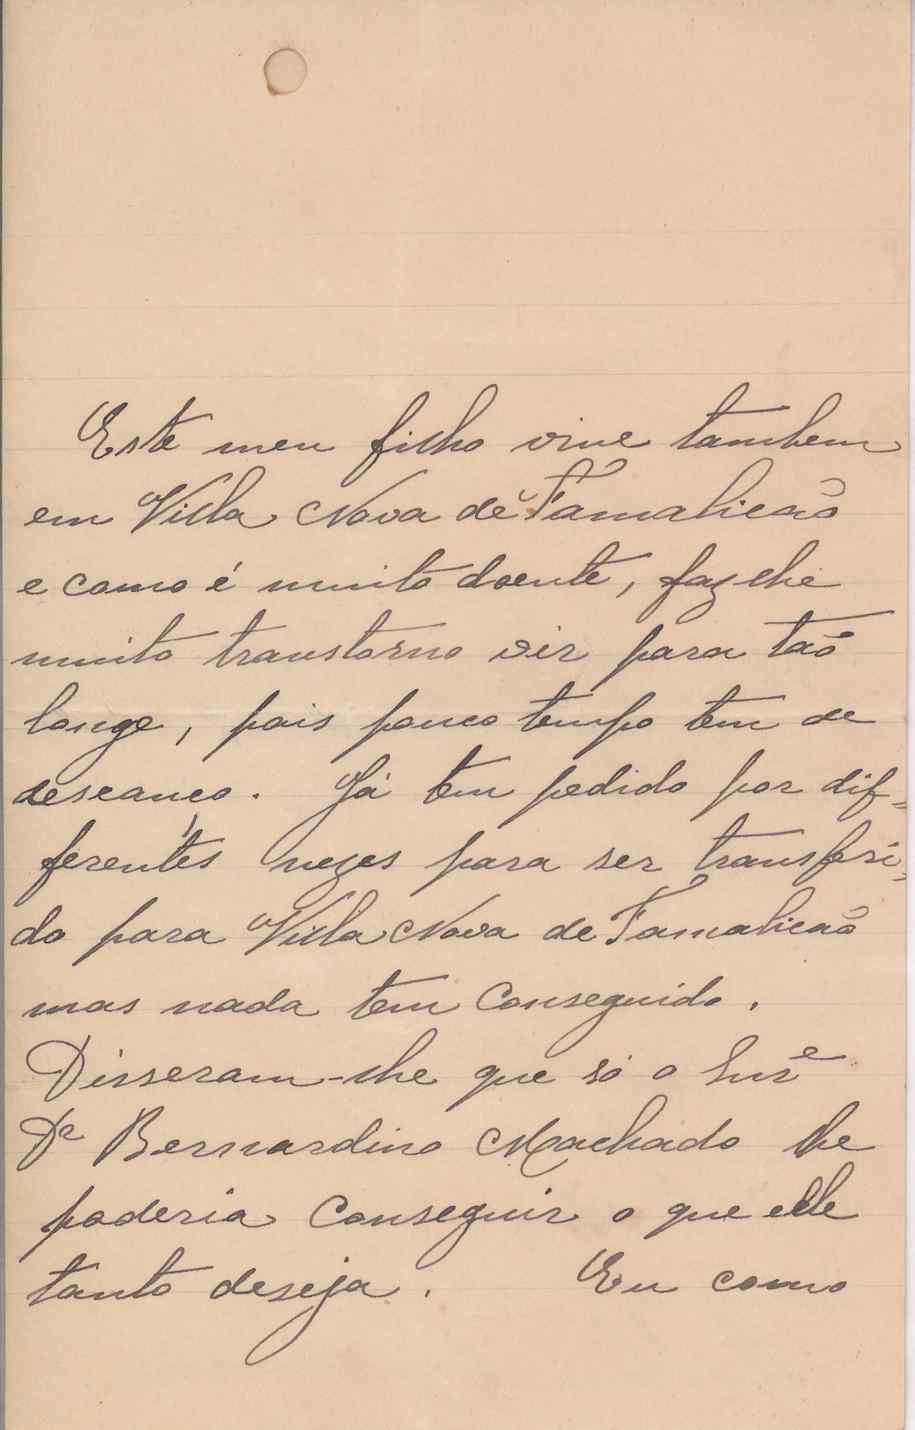 Este meu filho vive tambem
em Villa Nova de Famalicão
e como é muito doente, faz-lhe
muito transtorno vir para tão
longe, pois pouco tempo tem de
descanço. Já tem pedido por dif-
ferentes vezes para ser transferi-
do para Villa Nova de Famalicão
mas nada tem conseguido.
Disseram-lhe que só o Snr
Dr Bernardino Machado lhe
poderia conseguir o que elle
tanto deseja. Eu como